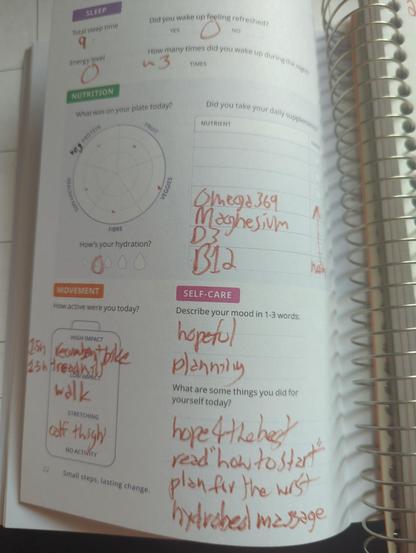 SLEEP
Total sleep time
9
Did you wake up feeling refreshed?
YES
NO
Energy level
0
How many times did you wake up during the night?
3 TIMES
NUTRITION
What was on your plate today?
PROTEIN
FRUIT
VEGGIES
FIBRE
How's your hydration?
Did you take your daily supplements
NUTRIENT
Omega 369
Maghesium
D3
B12
MOVEMENT
How active were you today?
HIGH IMPACT
recumbent bike
LOW IMPACT
walk
STRETCHING
calf thigh
NO ACTIVITY
SELF-CARE
Describe your mood in 1-3 words:
hopeful
planning
What are some things you did for
yourself today?
hope 4 the best
read "how to start"
plan for the wrst
hydrobed massage
Small steps, lasting change.